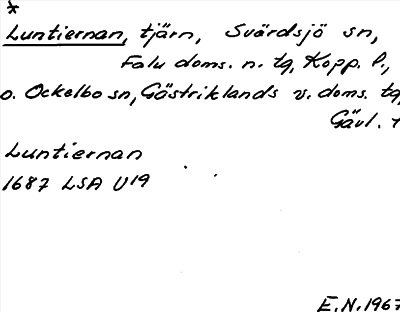 *
Luntiernan, tjärn, Svärdsjö sn,
Falu doms. n. tg, Kopp. l.,
o. Ockelbo sn, Gästriklands v. doms. tg,
Gävl.
Luntiernan
1687 LSA U19
E.N. 1967